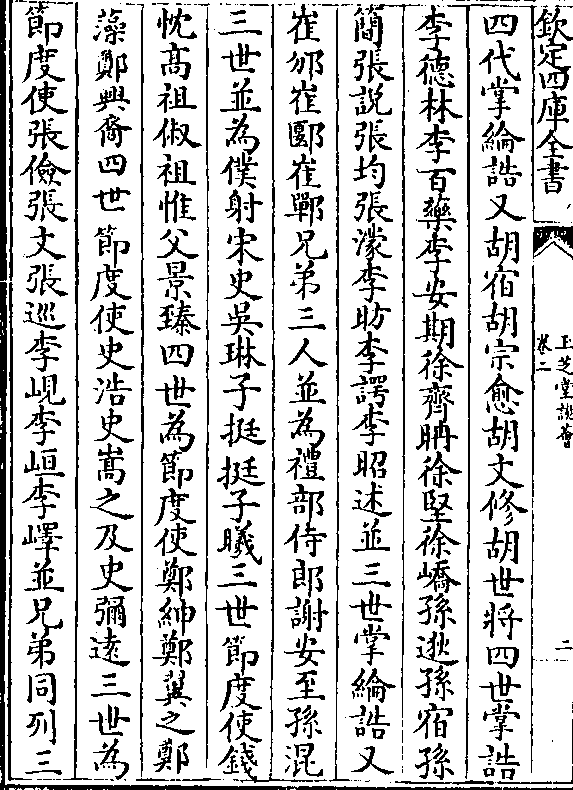 欽定四庫全書
玉芝堂談薈
卷二
二
四代掌綸誥又胡宿胡宗愈胡文修胡世將四世掌誥
李德林李百藥李安期徐齊聃徐堅徐嶠孫逖孫宿孫
簡張説張均張濛李昉李諤李昭述並三世掌綸誥又
崔邠崔郾崔鄲兄弟三人並為禮部侍郎謝安至孫混
三世並為僕射宋史吳琳子挺挺子曦三世節度使錢
忱高祖俶祖惟父景臻四世為節度使鄭紳鄭翼之鄭
藻鄭興裔四世節度使史浩史嵩之及史彌逺三世為
節度使張儉張文張巡李峴李峘李嶧並兄弟同列三